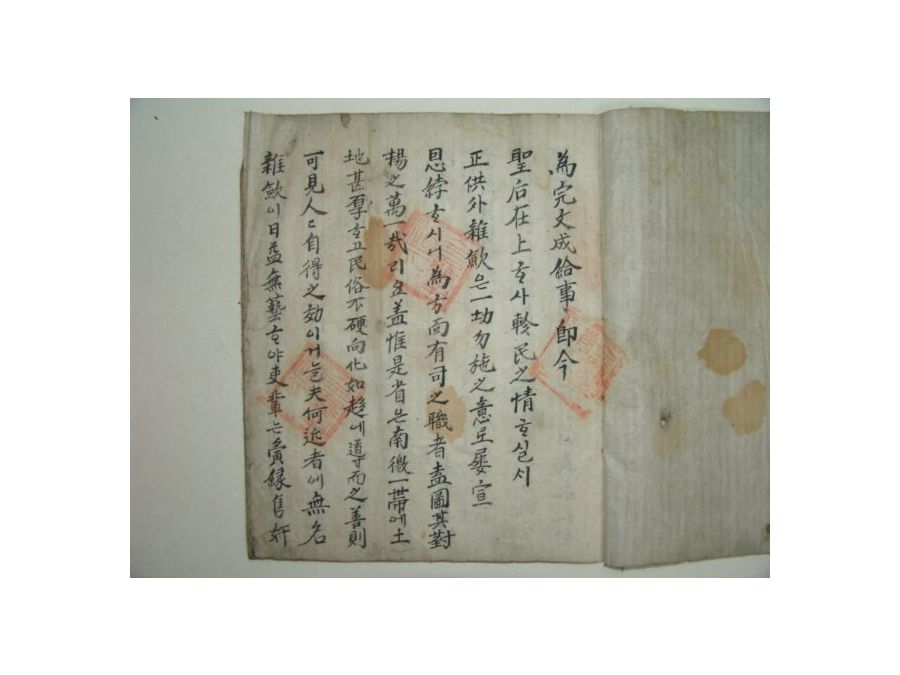 為完文成給事即今
聖后在上ᄒᆞ사軫民之情ᄒᆞ실시
正供外雜歛은一切勿施之意로屢宣
恩綍ᄒᆞ시니為方面有司之職者盍圖其對
揚之萬一哉리요盖惟是省은南徼一帶에土
地甚厚ᄒᆞ고民俗不硬向化如趍에導而之善則
可見人人自得之効이거ᄂᆞᆯ夫何近者에無名
雜歛이日益無藝ᄒᆞ야吏輩는夤緣售奸